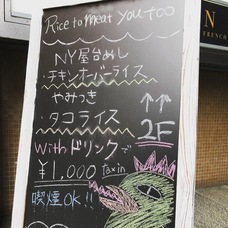 Rice to meat you too
NY屋台めし
・チキンオーバーライス
やみつき
・タコライス
↑↑
2F
With ドリンクで
¥1,000 Tax in
喫煙OK!!
N
FRENCH